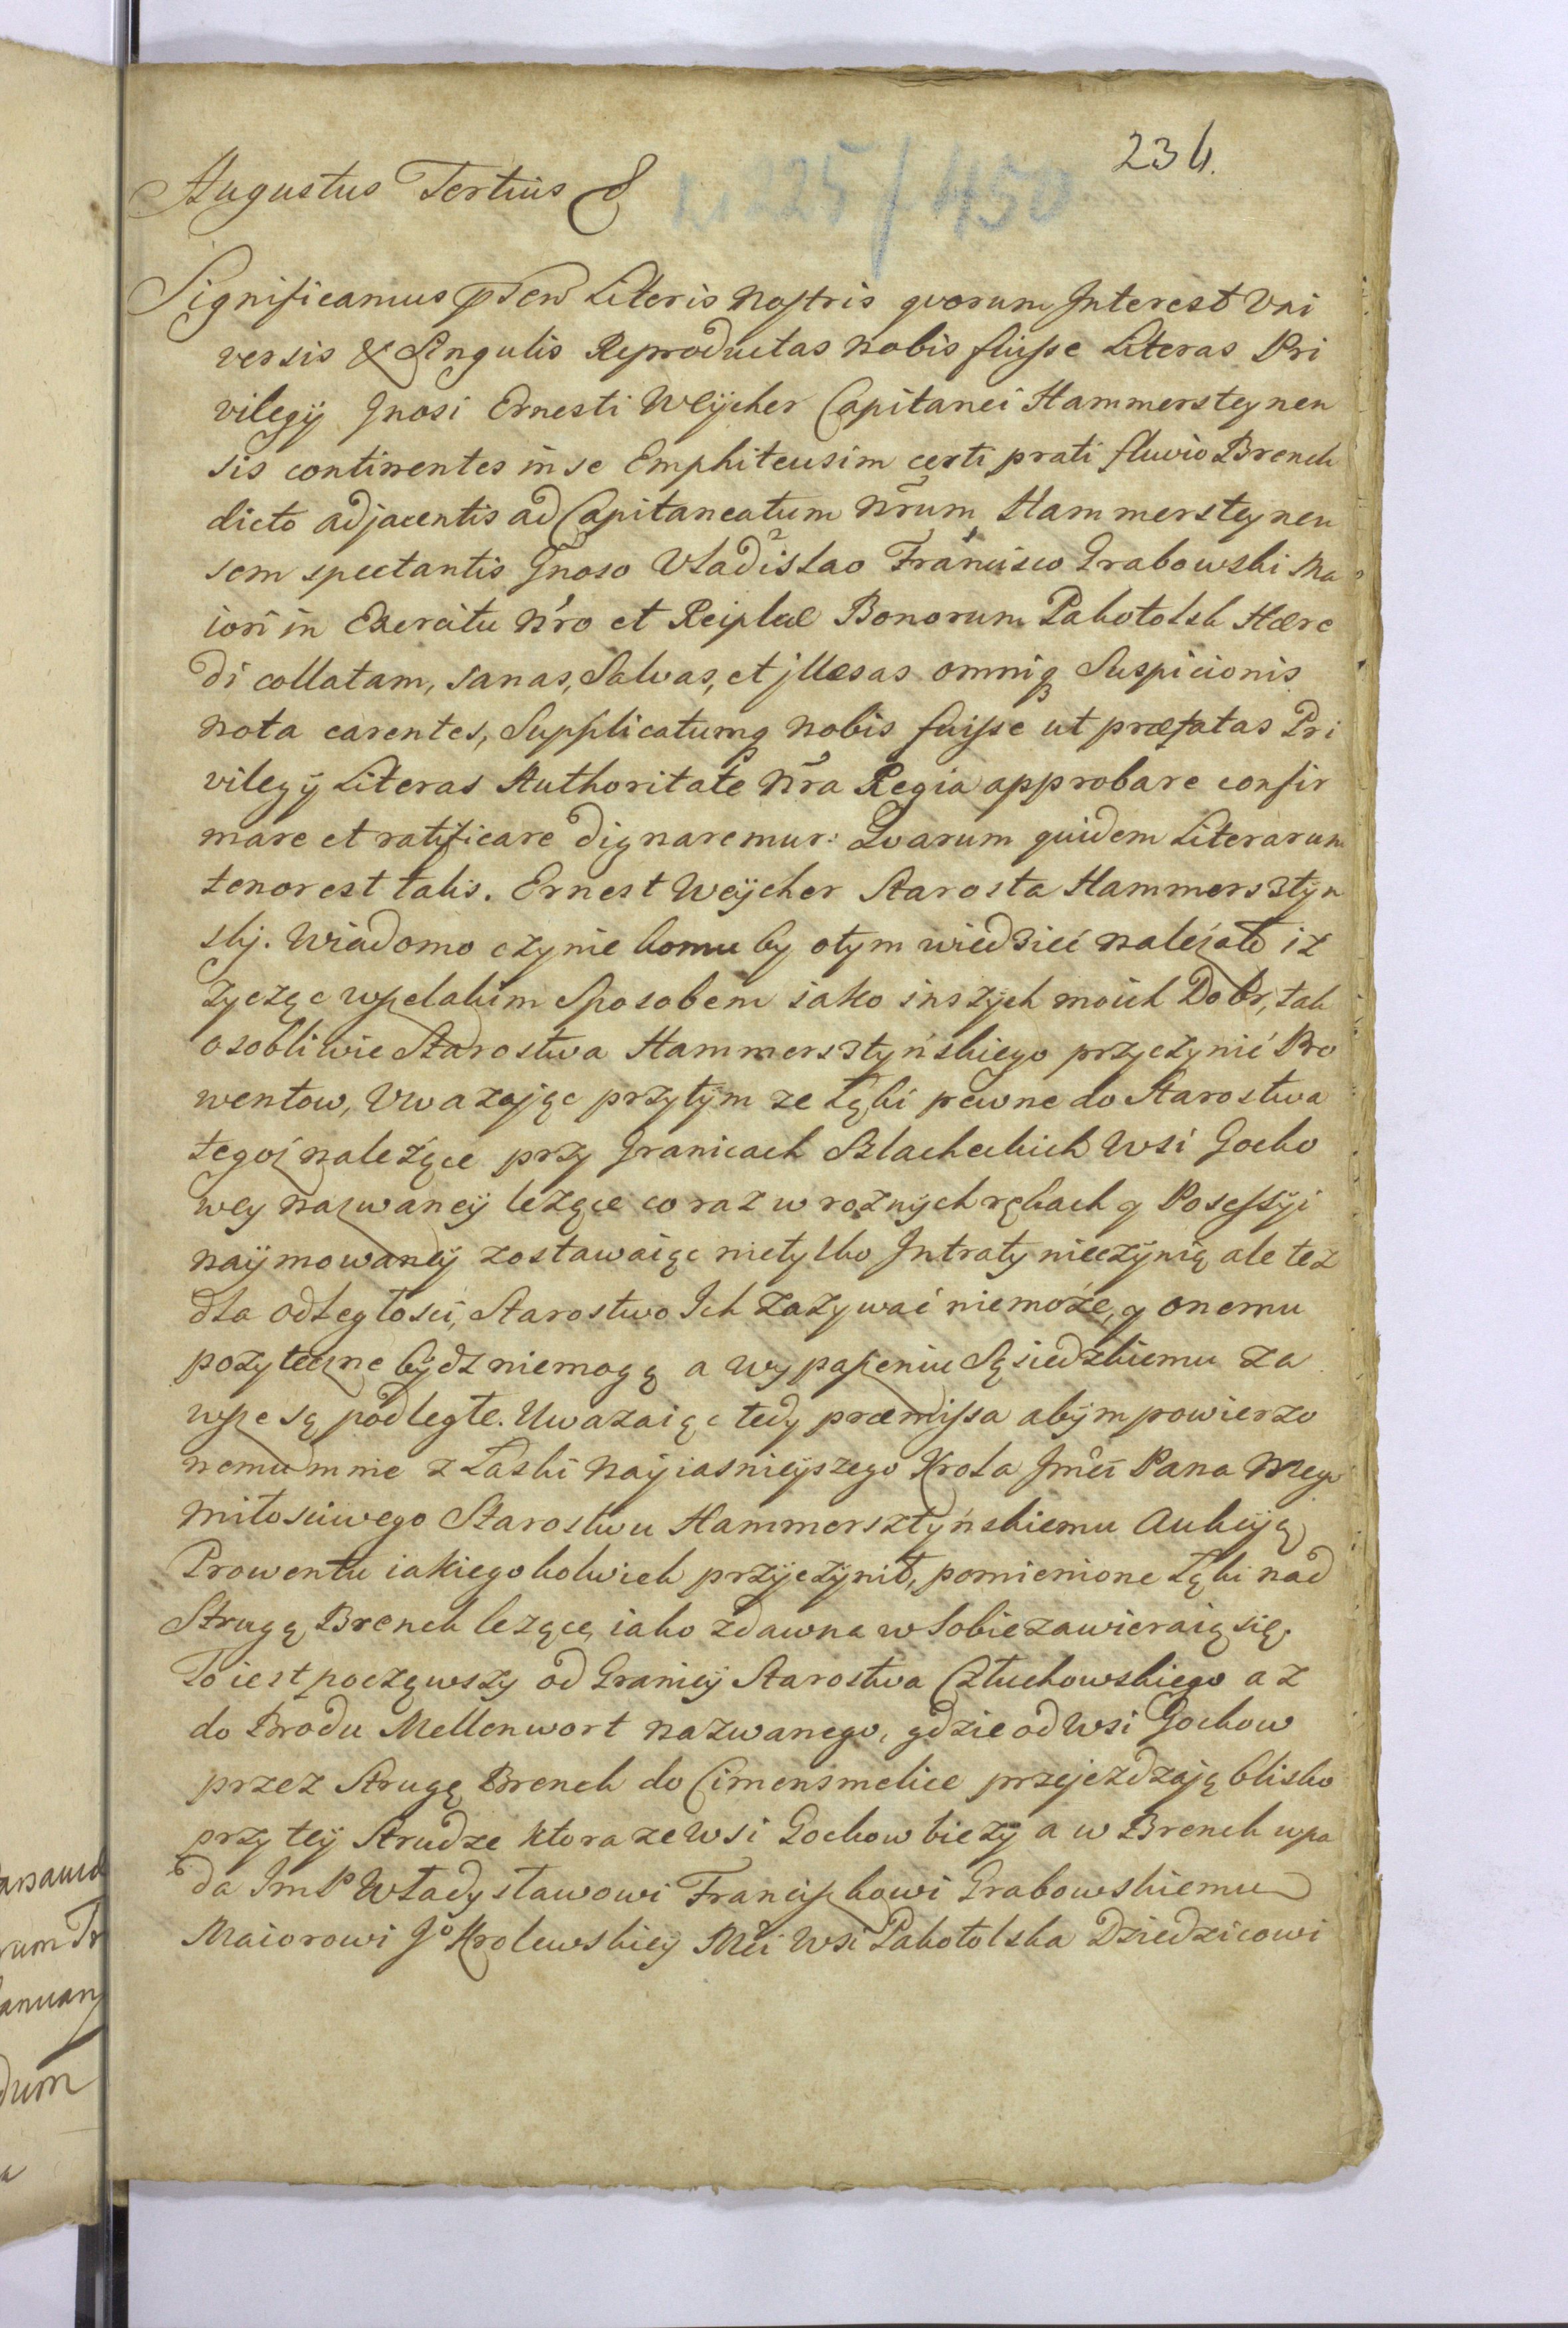 234.
225/450
Augustus Tertius &
Significamus pntbus Literis Nostris qvorum Interest Vni
versis & Singulis Reproductas nobis fuisse Literas Pri
vilegÿ Gnosi Ernesti Weÿcher Capitanei Hammersteynen
sis continentes in se Emphiteusim certi prati fluvio Brench
dicto adjacentis ad Capitaneatum Nrum Hammersteynen
sem spectantis Gnoso Vladislao Francisco Grabowski Ma
iori in Exercitu Nro et Reiplae Bonorum Pakotolsk Hære
di collatam, sanas, Salvas, et jllæsas omniq Suspicionis
nota carentes, Supplicatumq nobis fuisse ut præfatas Pri
vilegÿ Literas Authoritate Nra Regia approbare confir
mare et ratificare dignaremur: Qvarum quidem Literarum
tenor est talis. Ernest Weÿcher Starosta Hammersztÿn
skj. Wiadomo czynie komu by otym wiedzieć należało iż
zyczęc wszelakim Sposobem iako inszych moich Dobr, tak
osobliwie Starostwa Hammersztyńskiego przyczynić Pro
wentow, Uwazając przytym ze Łęki pewne do Starostwa
tegoż należące przy Granicach Szlacheckich Wsi Gocko
wey nazwaneÿ lezące co raz w roznych rękach y Possessÿi
naÿmowaneÿ zostawaięc nietylko Intraty nieczÿnią ale tez
dla odległosci, Starostwo Ich zazywać niemoże, y onemu
pozyteczne bÿdz niemogą a wypaseniu Sąsiedzkiemu za
wsze są podległe. Uwazaięc tedy præmissa abÿm powierzo
nemu mnie z Łaski Naÿiasnieÿszego Krola Jmci Pana Mego
Miłosciwego Starostwu Hammersztyńskiemu Aukcÿą
Prowentu iakiegokolwiek przÿczÿnił, pomienione Łęki nad
Strugą Brenck lezące, iako zdawna w sobie zawieraią się.
To iest począwszy od Granicÿ Starostwa Człuchowskiego az
do Brodu Mellenwort nazwanego, gdzie od Wsi Gockow
przez Strugę Brenck do Cimensmelice przejezdzają blisko
przy teÿ Strudze ktora ze Wsi Gockow biezÿ a w Brenck wpa
da Jm P Władysławowi Franciszkowi Grabowskiemu
Maiorowi Jo Krolewskieÿ Mci Wsi Pakotolska Dziedzicowi